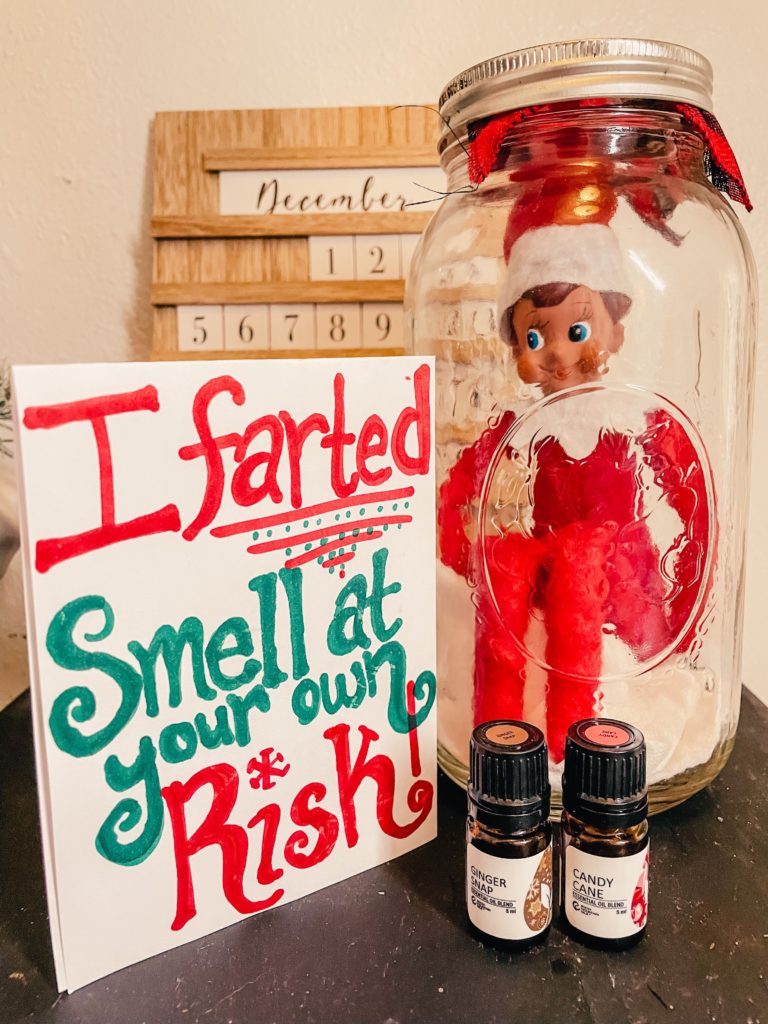 December
1 2
5 6 7 8 9
I farted
Smell at
your own
Risk!
GINGER SNAP
CANDY CANE
GINGER
SNAP
ESSENTIAL OIL BLEND
5 ml
CANDY
CANE
ESSENTIAL OIL BLEND
5 ml